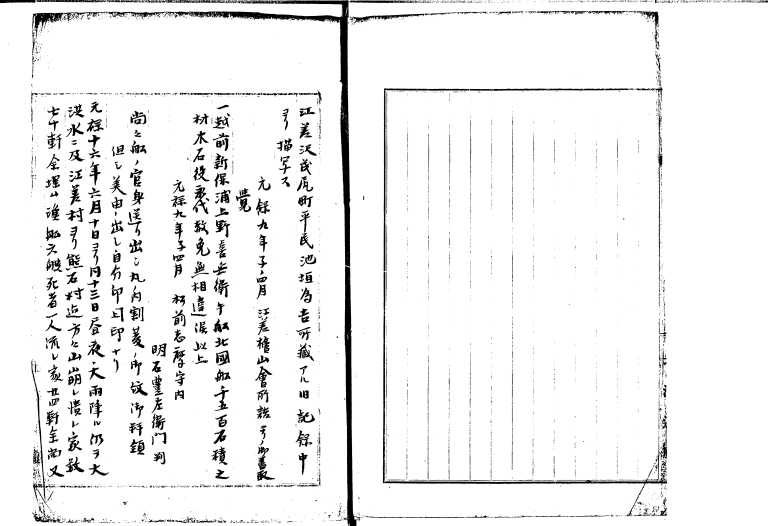 江差沢茂尻町平民池垣為吉所蔵アル旧記録中
ヨリ描写ス
元録九年子ノ月 江差檜山會所詰ヨリノ御書取
覚
一越前新保浦上野喜兵衛手船北國船千五百石積之
材木石役弐代教免無相違候以上
元禄九年子四月 松前志摩守内
明石豊左衛門 判
尚々船ノ官身送り出シ丸ノ内割菱ノ御紋御料鎖
但シ美由ノ出シ自分印同印ナリ
元禄十六年六月十日ヨリ同十三日昼夜ノ大雨降ル仍ヲ大
洪水ニ及江差村ヨリ熊石村迄方々山崩レ潰レ家数
七十軒全埋レ漁船六艘死者一人流レ家廿四軒全尚又